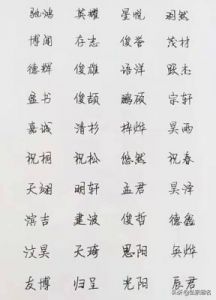 驰鸿 英耀 星悦 羽然
博闻 存志 俊誉 茂材
德辉 俊雄 语洋 跃志
孟书 俊颉 鹏硕 宗轩
嘉诚 清杉 梓烨 昊雨
祝桐 祝松 悠然 祝春
天翊 明轩 孟君 昊泽
滨吉 建波 俊哲 德鑫
汶昊 天琦 思阳 奂烨
友博 归呈 光阳 辰君